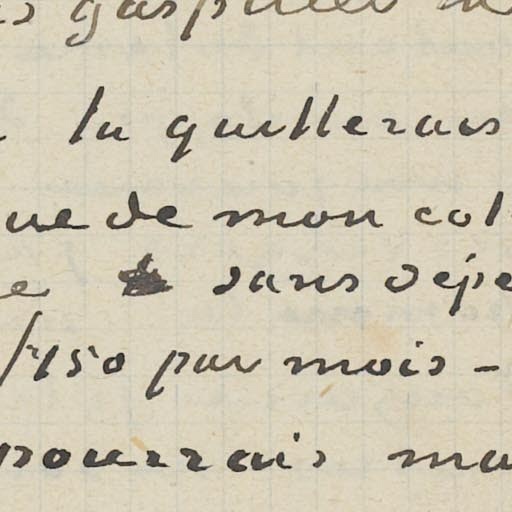 gaspiller
tu quitterais
que de mon col
sans dépe
150 par mois -
pourrais ma